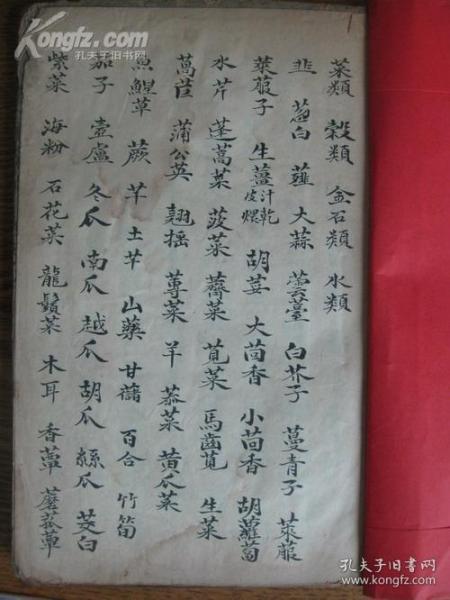 菜類 穀類 金石類 水類
韭 葱白 薤 大蒜 蕓薹 白芥子 蔓青子 萊菔
萊菔子 生薑 汁 皮 乾 煨 胡荽 大茴香 小茴香 胡蘿蔔
水芹 蓬蒿菜 菠菜 薺菜 莧菜 馬齒莧 生菜
萵苣 蒲公英 翹摇 蓴菜 羊 菾菜 黄瓜菜
魚鯹草 蕨 芋 土芋 山藥 甘藷 百合 竹筍
茄子 壺盧 冬瓜 南瓜 越瓜 胡瓜 絲瓜 茭白
紫菜 海粉 石花菜 龍鬚菜 木耳 香蕈 蘑菰蕈
Kongfz.com
孔夫子旧书网
孔夫子旧书网
www.kongfz.com